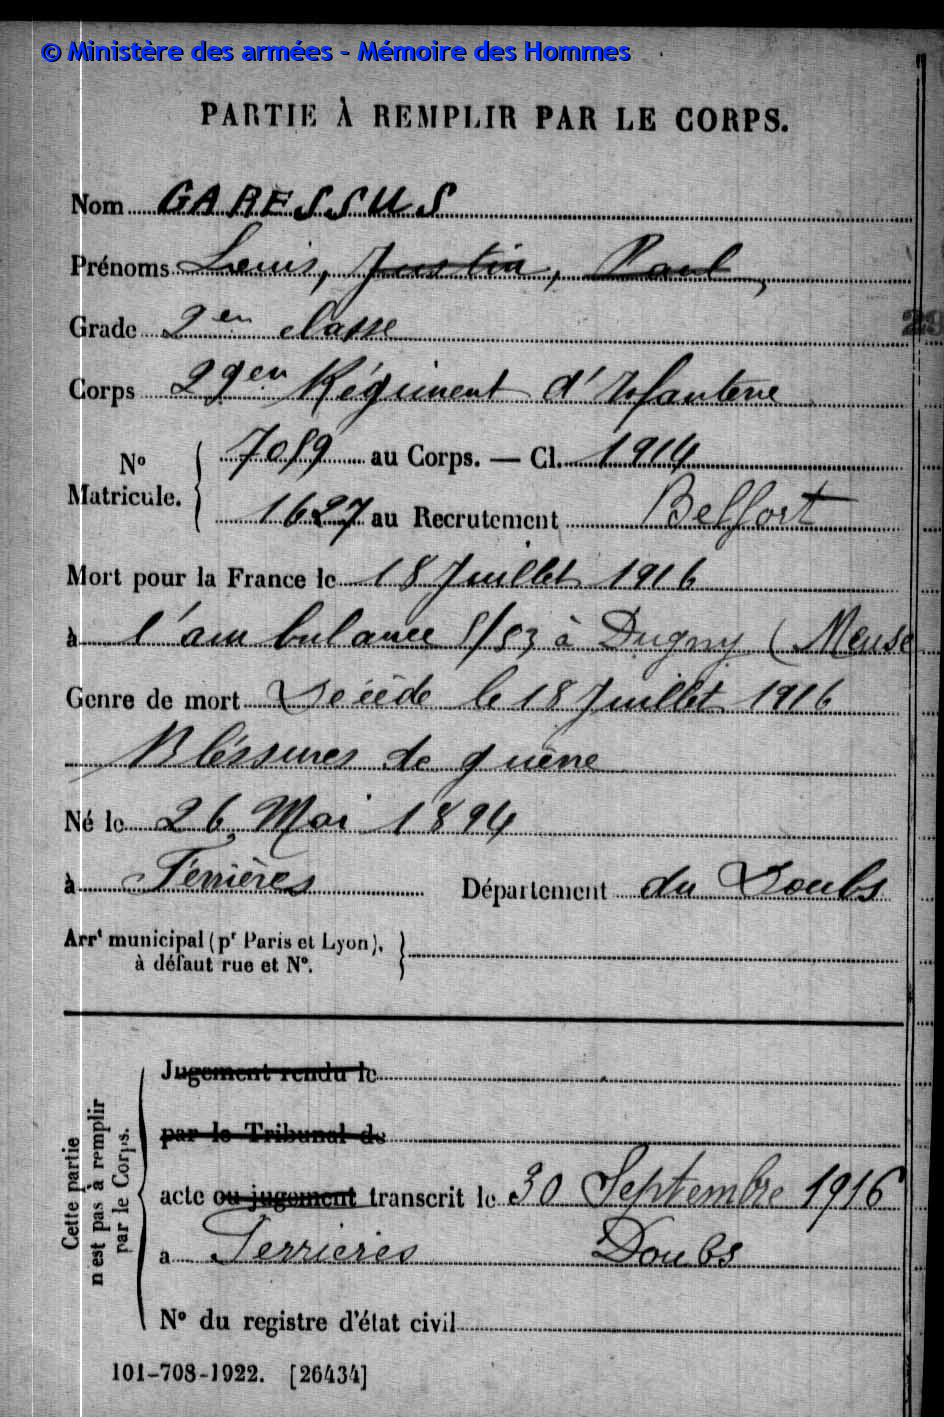 © Ministère des armées - Mémoire des Hommes
PARTIE À REMPLIR PAR LE CORPS.
Nom GARESSUS
Prénoms Louis, Justin, Paul,
Grade 2en classe
29
Corps 29en Régiment d'Infanterie
N° Matricule. 7059 au Corps. — Cl. 1914
1627 au Recrutement Belfort
Mort pour la France le 18 Juillet 1916
à l'ambulance 5/53 à Dugny (Meuse
Genre de mort Décédé le 18 Juillet 1916
Bléssures de guerre
Né le 26 Mai 1894
à Ferrières Département du Doubs
Arrt municipal (pr Paris et Lyon),
à défaut rue et N°.
Cette partie
n'est pas à remplir
par le Corps.
Jugement rendu le
par le Tribunal de
acte ou jugement transcrit le 30 Septembre 1916
a Ferrieres Doubs
N° du registre d'état civil
101-708-1922. [26434]